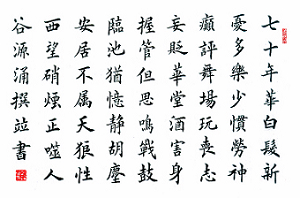 七十年華白髮新
憂多樂少慣勞神
癲評舞場玩喪志
妄貶華堂酒害身
握管但思鳴戰鼓
臨池猶憶靜胡塵
安居不属天狼性
西望硝煙正噬人
谷源涌撰竝書